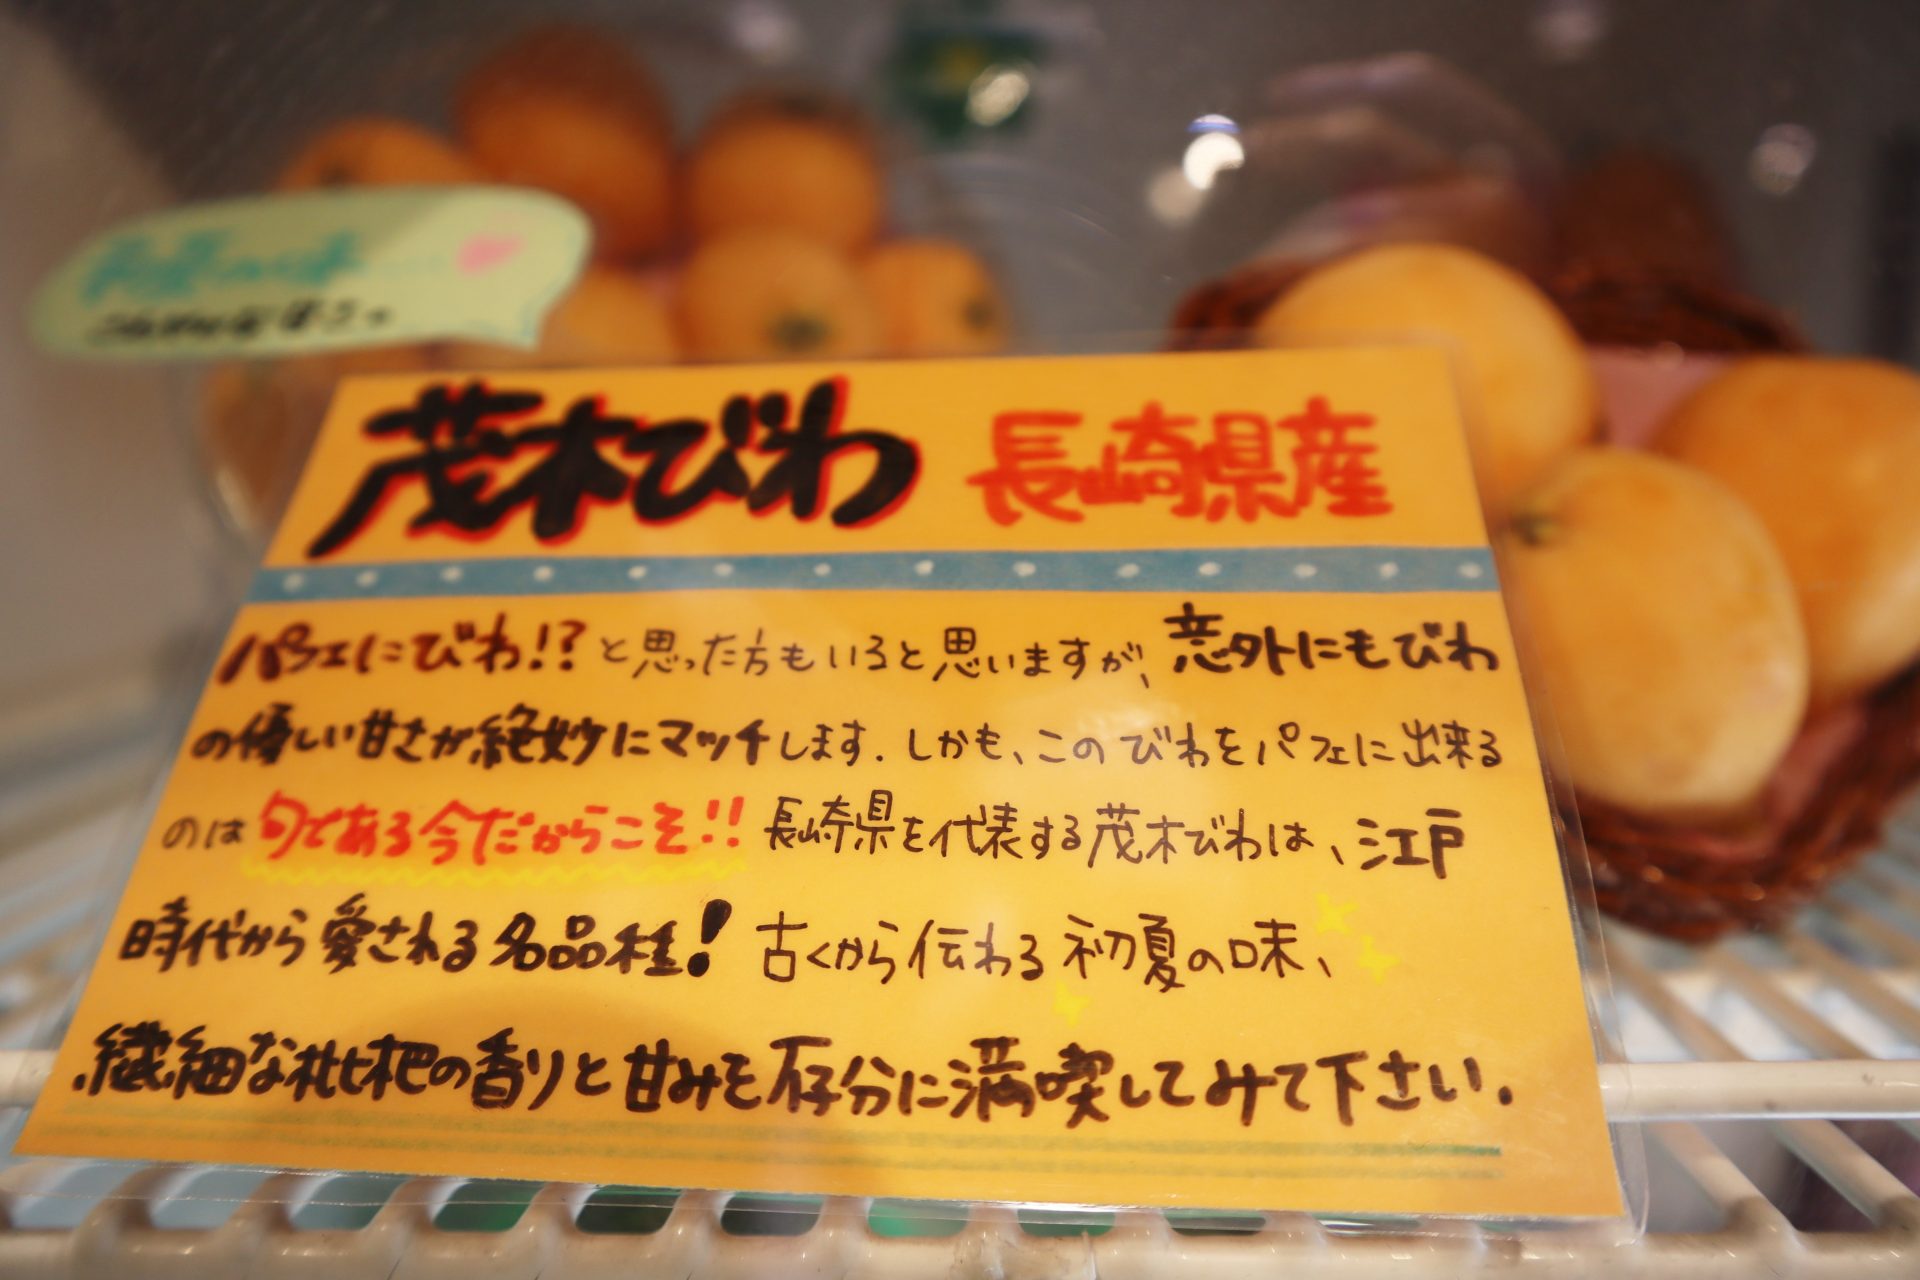 茂木びわ 長崎県産
パフェにびわ!?と思った方もいると思いますが、意外にもびわ
の優しい甘さが絶妙にマッチします.しかも、このびわをパフェに出来る
のは旬である今だからこそ!!長崎県を代表する茂木びわは、江戸
時代から愛される名品種!古くから伝わる初夏の味、
繊細な枇杷の香りと甘みを存分に満喫してみて下さい.